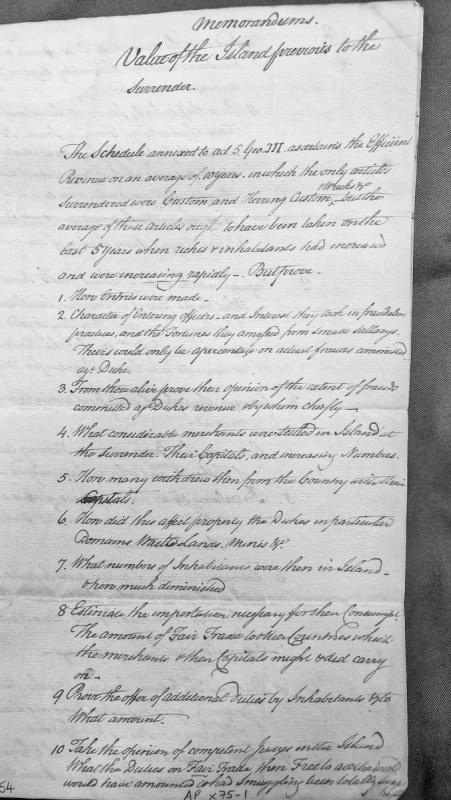 Memorandums.
Value of the Island previous to the
Surrender.
The Schedule annexed to act 5. Geo. III. ascertains the Efficient
Revenue on an average of 10 years. in which the only articles
Wrecks &c
Surrendered were Custom and Herring Custom, but the
average of these articles ought to have been taken on the
last 5 Years when riches & inhabitants had increased
and were increasing rapidly - But prove -
1. How Entries were made -
2. Character of Entering officers - and Interest they took in fraudulent
practices, and the Fortunes they amassed from small Sallarys.
Theirs could only be a percentage on actual frauds committed
agt Duke.
3. From those alive prove their opinion of the extent of frauds
committed agt Dukes revenue & by whom chiefly -
4. What considerable merchants were settled in Island at
the Surrender. Their Capitals, and increasing Numbers.
5. How many withdrew then from the Country with their
Capitals.
6. How did this affect property the Dukes in particular
Domains Waste Lands, Mines &c.
7. What numbers of Inhabitants were then in Island -
& how much diminished
8 Estimate the importation necessary for their Consumpt.
The amount of Fair Trade to other Countries which
the merchants & their Capitals might & did carry
on -
9 Prove the offer of additional duties by Inhabitants & to
What amount.
10 Take the opinion of competent Judges in the Island
What the Duties on Fair Trade then Free to
would have amounted to had Smuggling been totally
54
AP x75-1